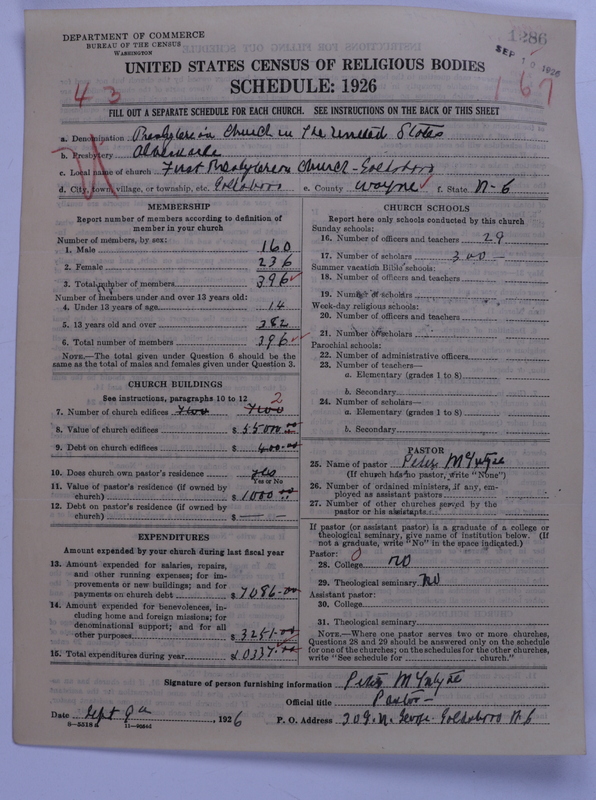 DEPARTMENT OF COMMERCE
BUREAU OF THE CENSUS
WASHINGTON
1286
SEP 10 1926
UNITED STATES CENSUS OF RELIGIOUS BODIES
SCHEDULE: 1926
43
167
FILL OUT A SEPARATE SCHEDULE FOR EACH CHURCH. SEE INSTRUCTIONS ON THE BACK OF THIS SHEET
a. Denomination Presbyterian Church in The United States
b. Presbytery Albemarle
c. Local name of church First Presbyterian Church - Goldsboro
d. City, town, village, or township, etc. Goldsboro e. County Wayne f. State N-C
MEMBERSHIP
Report number of members according to definition of
member in your church
Number of members, by sex:
1. Male 160
2. Female 236
3. Total number of members 396
Number of members under and over 13 years old:
4. Under 13 years of age 14
5. 13 years old and over 382
6. Total number of members 396
NOTE.—The total given under Question 6 should be the
same as the total of males and females given under Question 3.
CHURCH BUILDINGS
See instructions, paragraphs 10 to 12 2
7. Number of church edifices Two Two
8. Value of church edifices $ 55000.00
9. Debt on church edifices $ 400.00
10. Does church own pastor's residence yes
Yes or No
11. Value of pastor's residence (if owned by
church) $ 1000.00
12. Debt on pastor's residence (if owned by
church) $
EXPENDITURES
Amount expended by your church during last fiscal year
13. Amount expended for salaries, repairs,
and other running expenses; for im-
provements or new buildings; and for
payments on church debt $ 7086.00
14. Amount expended for benevolences, in-
cluding home and foreign missions; for
denominational support; and for all
other purposes $ 3251.00
15. Total expenditures during year $ 10337.00
CHURCH SCHOOLS
Report here only schools conducted by this church
Sunday schools:
16. Number of officers and teachers 29
17. Number of scholars 300 —
Summer vacation Bible schools:
18. Number of officers and teachers
19. Number of scholars
Week-day religious schools:
20. Number of officers and teachers
21. Number of scholars
Parochial schools:
22. Number of administrative officers
23. Number of teachers—
a. Elementary (grades 1 to 8)
b. Secondary
24. Number of scholars—
a. Elementary (grades 1 to 8)
b. Secondary
PASTOR
25. Name of pastor Peter McIntyre
(If church has no pastor, write "None")
26. Number of ordained ministers, if any, em-
ployed as assistant pastors
27. Number of other churches served by the
pastor or his assistants
If pastor (or assistant pastor) is a graduate of a college or
theological seminary, give name of institution below. (If
not a graduate, write "No" in the space indicated.)
Pastor: 0
28. College NO
29. Theological seminary NO
Assistant pastor:
30. College
31. Theological seminary
NOTE.—Where one pastor serves two or more churches,
Questions 28 and 29 should be answered only on the schedule
for one of the churches; on the schedules for the other churches,
write "See schedule for church."
Signature of person furnishing information Peter McIntyre
Official title Pastor —
Date Sept 9th, 1926 P. O. Address 309. N. George - Goldsboro N-C
8-5518a 11-9052